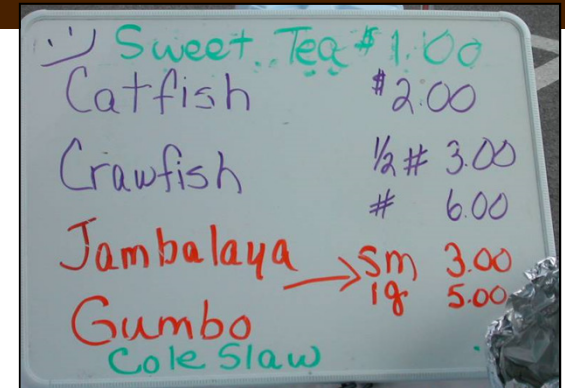 Sweet Tea $1.00
Catfish $2.00
Crawfish 1/2 # 3.00
# 6.00
Jambalaya → Sm 3.00
lg 5.00
Gumbo
Cole Slaw